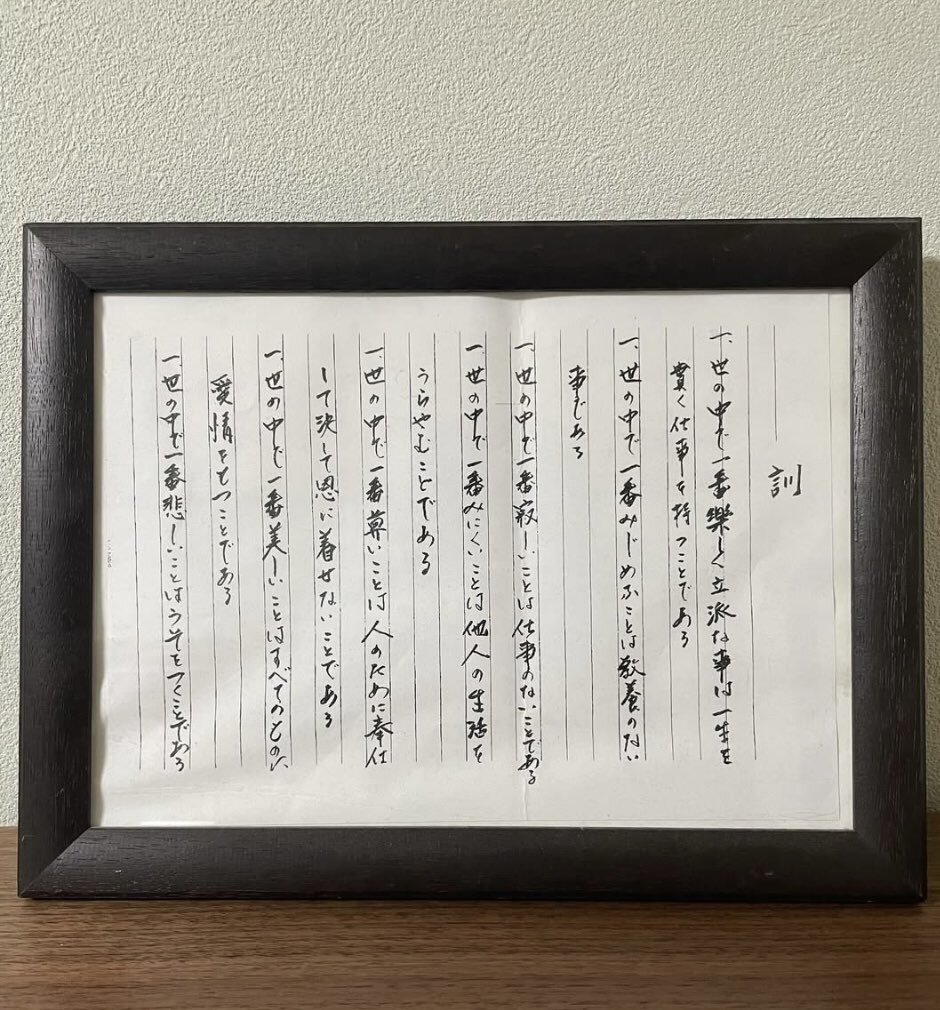 訓
一、世の中で一番樂しく立派な事は一生を
貫く仕事を持つことである
一、世の中で一番みじめなことは教養のない
事である
一、世の中で一番寂しいことは仕事のないことである
一、世の中で一番みにくいことは他人の生活を
うらやむことである
一、世の中で一番尊いことは人のために奉仕
して決して恩に着せないことである
一、世の中で一番美しいことはすべてのものに
愛情をもつことである
一、世の中で一番悲しいことはうそをつくことである